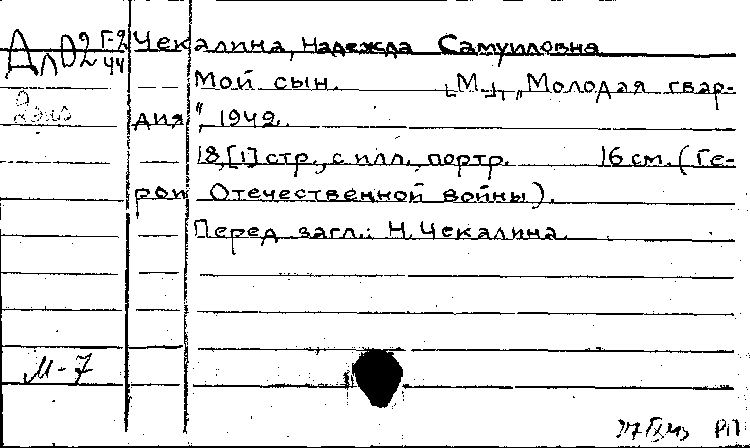 Чекалина, Надежда Самуиловна
Мой сын. [М.], „Молодая гвар-
дия“, 1942.
18,[1] стр., с илл., портр. 16 см. (Ге-
рои Отечественной войны).
Перед загл.: Н. Чекалина
М-7